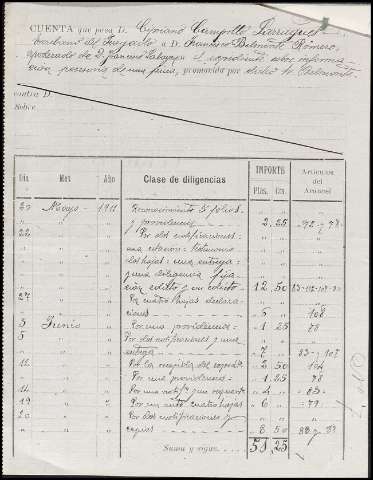 CUENTA que pasa D. Cipriano Campillo
Escribano del Juzgado a D. Francisco Belmonte Romero,
apoderado de D. Francisco el expediente sobre informa-
ción posesoria de una finca, promovido por dicho Sr. Belmonte
contra D.
Sobre
Día Mes Año Clase de diligencias IMPORTE Ptas. Cts. Artículos del Arancel
20 Mayo 1911 Reconocimiento 5 folios
y providencia 2 25 92 y 78
22 Por dos notificaciones:
una citación: testimonio
dos hojas: una entrega:
y una diligencia fija-
ción edicto y un edicto 12 50
27 Por cuatro hojas declara-
ciones 6 " 108
3 Junio Por una providencia 1 25 78
5 Por dos notificaciones y una
entrega 7 " 83 y 107
11 Por la 2 50
" Por una providencia 1 25 78
14 Por una notifon y un 4 " 83
19 Por un auto cuatro hojas 6 " 79
20 Por dos notificaciones y
copias 8 50 83 y
Suma y sigue 51,25